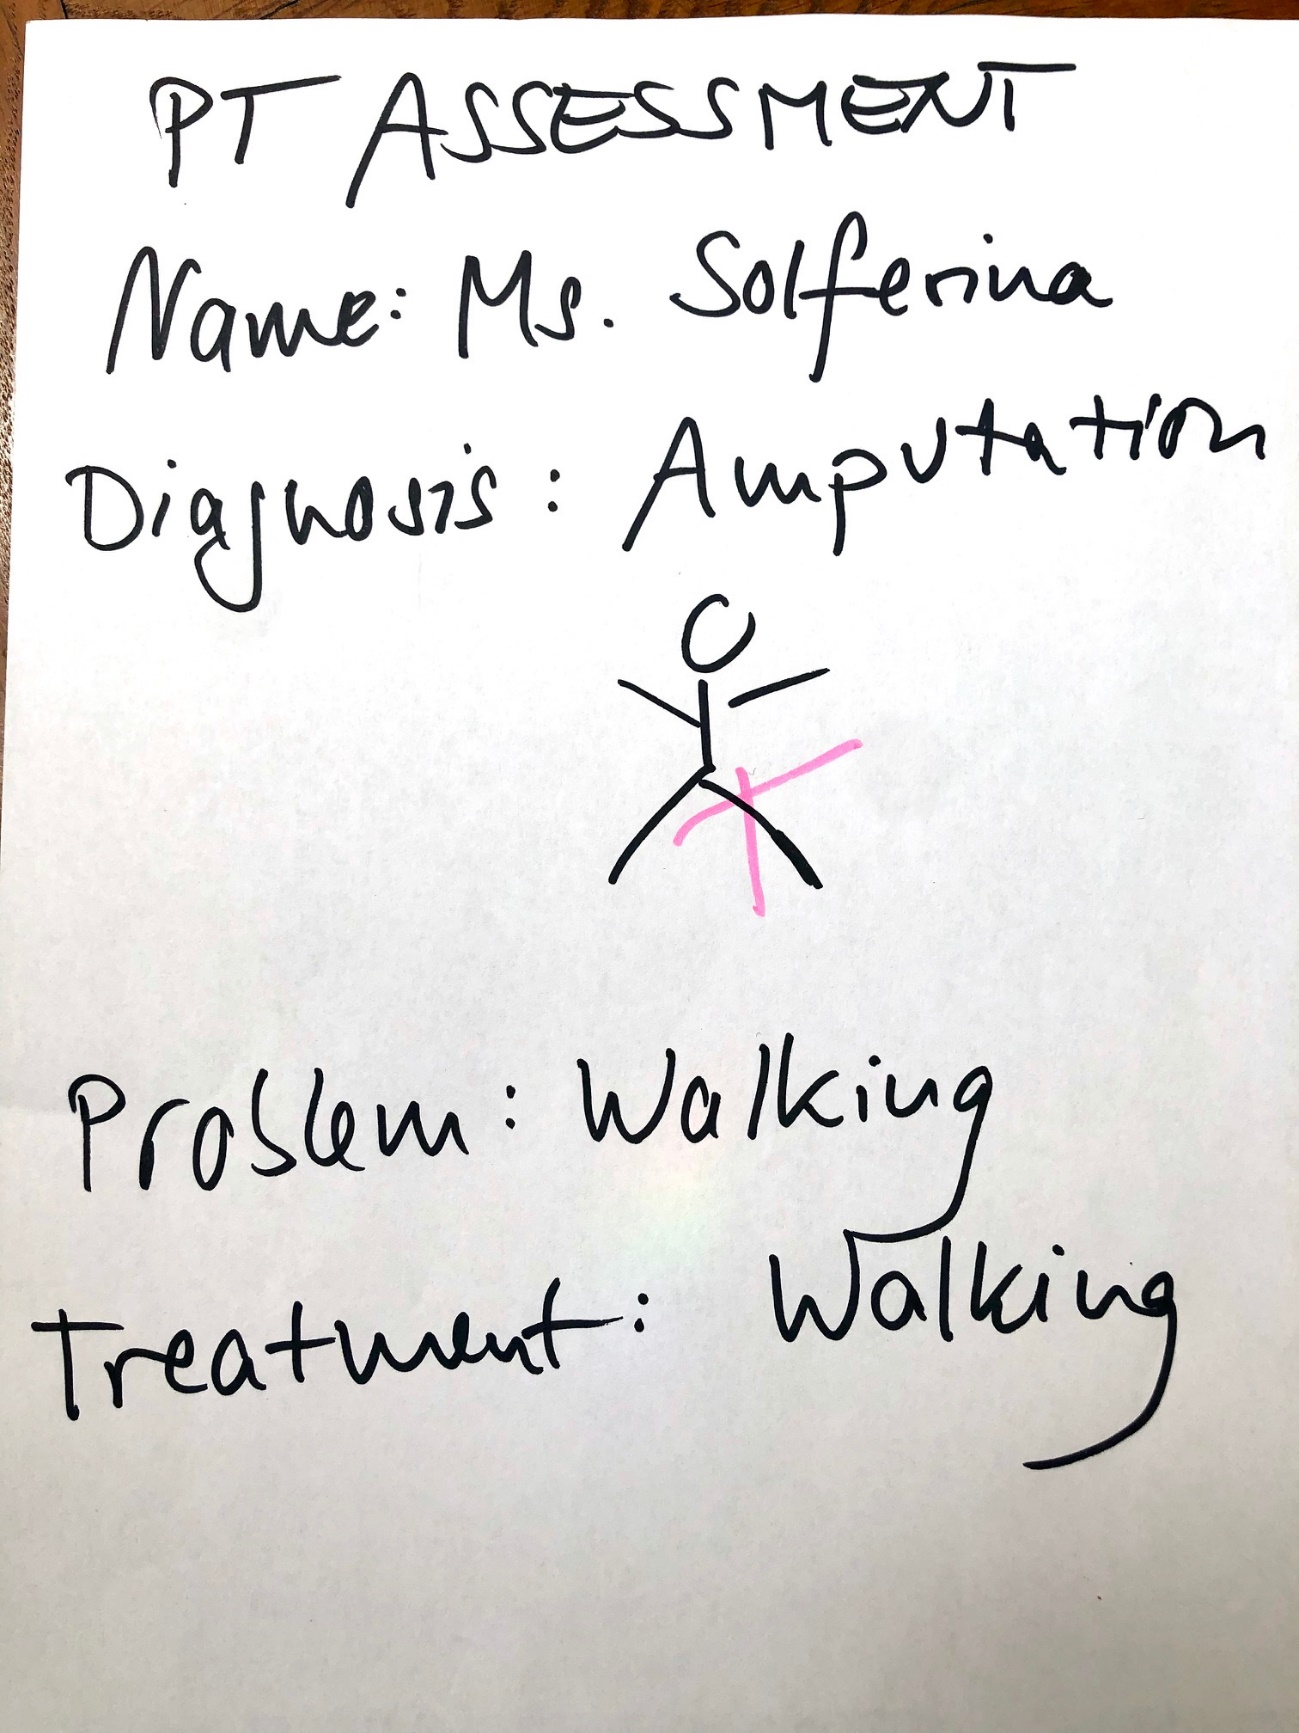 PT ASSESSMENT
Name: Ms. Solferina
Diagnosis: Amputation
Problem: Walking
Treatment: Walking